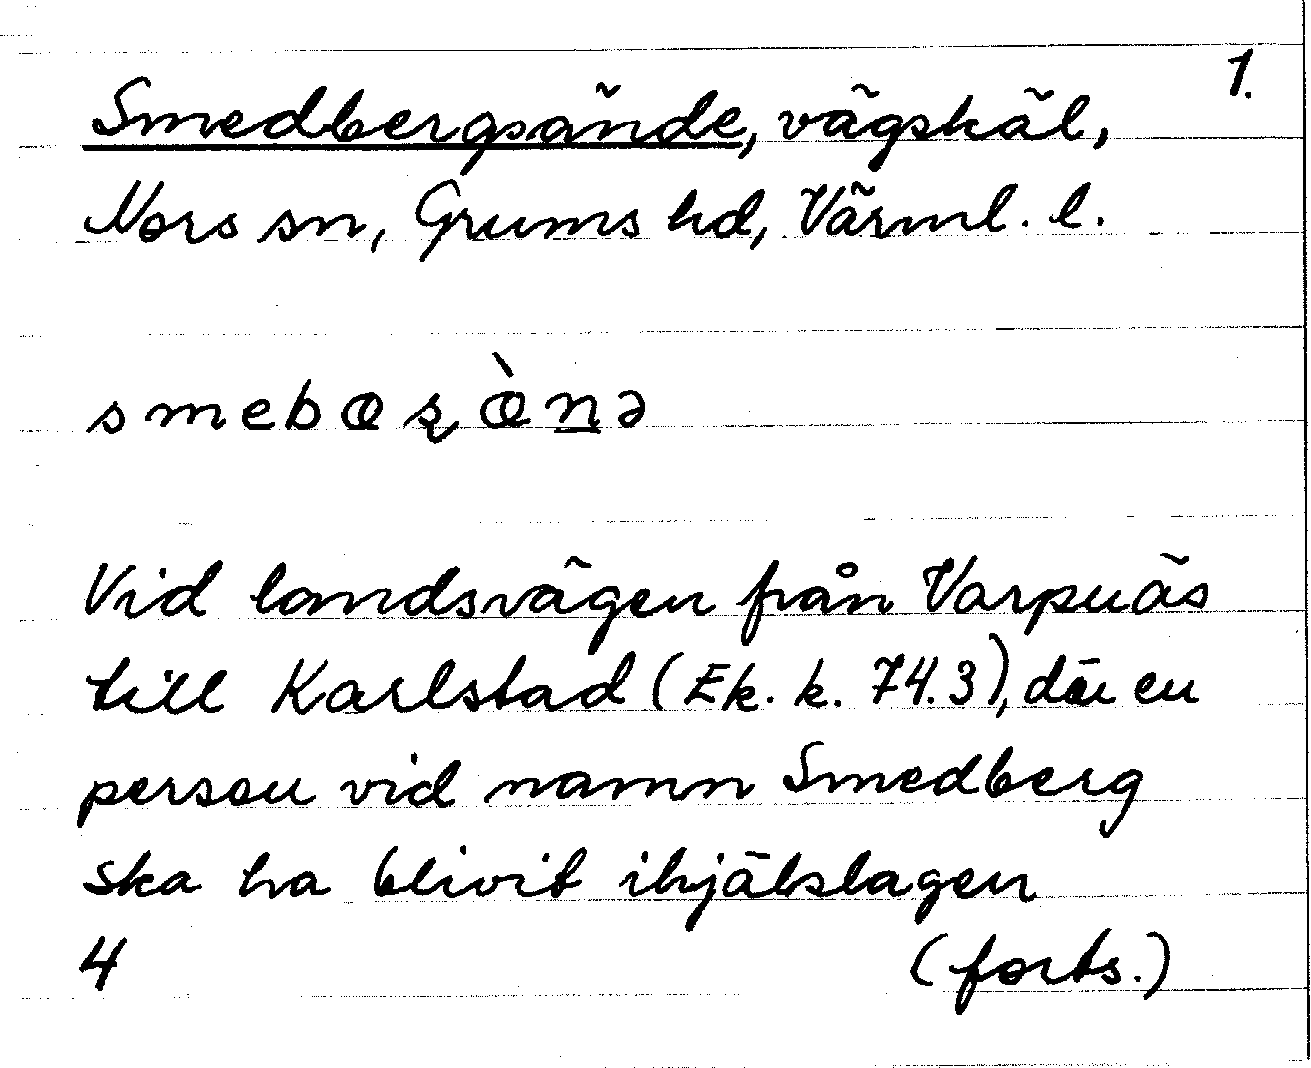 1.
Smedbergsände, vägskäl,
Nors sn, Grums hd, Värml. l.
smebœʂœ̀n̲ə
Vid landsvägen från Varpnäs
till Karlstad (Ek. k. 74.3), där en
person vid namn Smedberg
ska ha blivit ihjälslagen
4 (forts.)